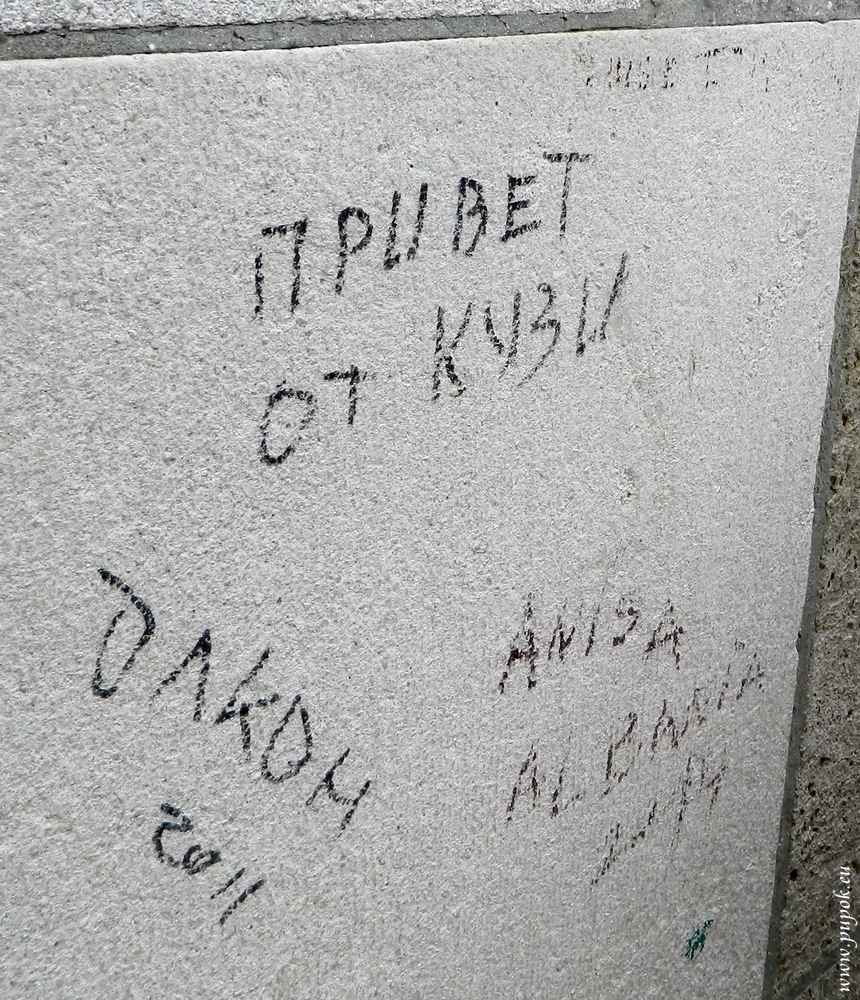 ПРИВЕТ
ОТ КУЗИ
ДАКОН
2011
ANISA
ALBANIA
www.pupok.eu